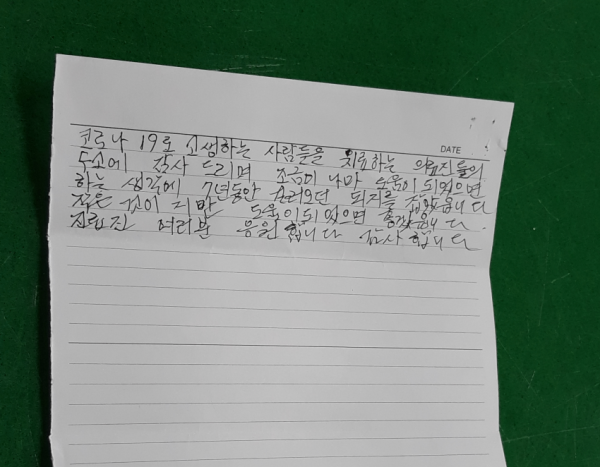 DATE
코로나 19로 고생하는 사람들을 치료하는 의료진들의
감사 드리며 조금이나마 도움이 되었으면
하는 생각에 7년동안 잡았읍니다
적은 도움이되었으면 좋겠읍니다.
의료진 여러분 응원합니다 감사합니다